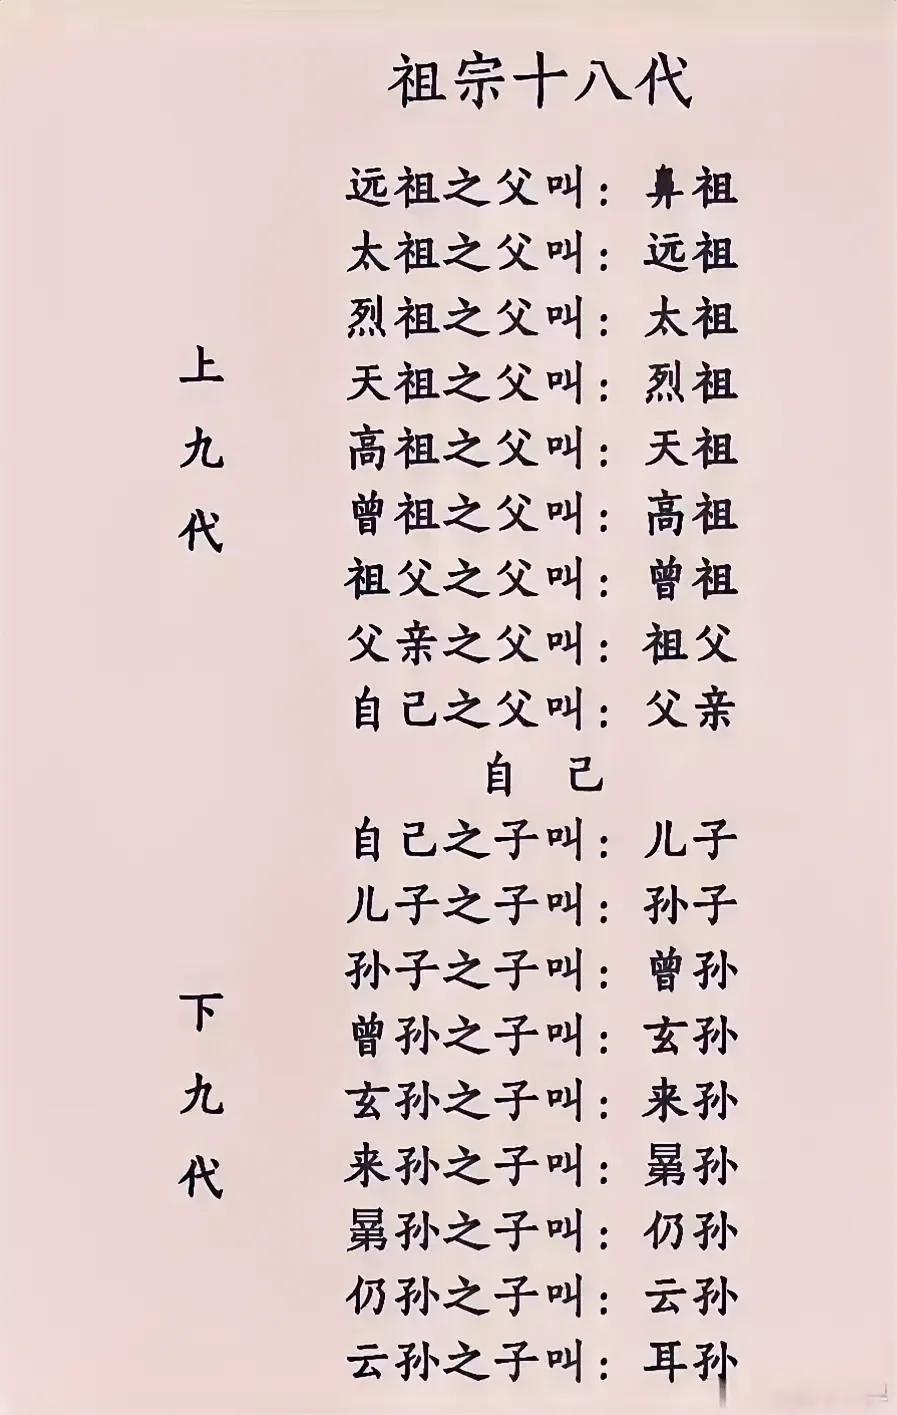 祖宗十八代
上九代
远祖之父叫：鼻祖
太祖之父叫：远祖
烈祖之父叫：太祖
天祖之父叫：烈祖
高祖之父叫：天祖
曾祖之父叫：高祖
祖父之父叫：曾祖
父亲之父叫：祖父
自己之父叫：父亲
自己
下九代
自己之子叫：儿子
儿子之子叫：孙子
孙子之子叫：曾孙
曾孙之子叫：玄孙
玄孙之子叫：来孙
来孙之子叫：晜孙
晜孙之子叫：仍孙
仍孙之子叫：云孙
云孙之子叫：耳孙